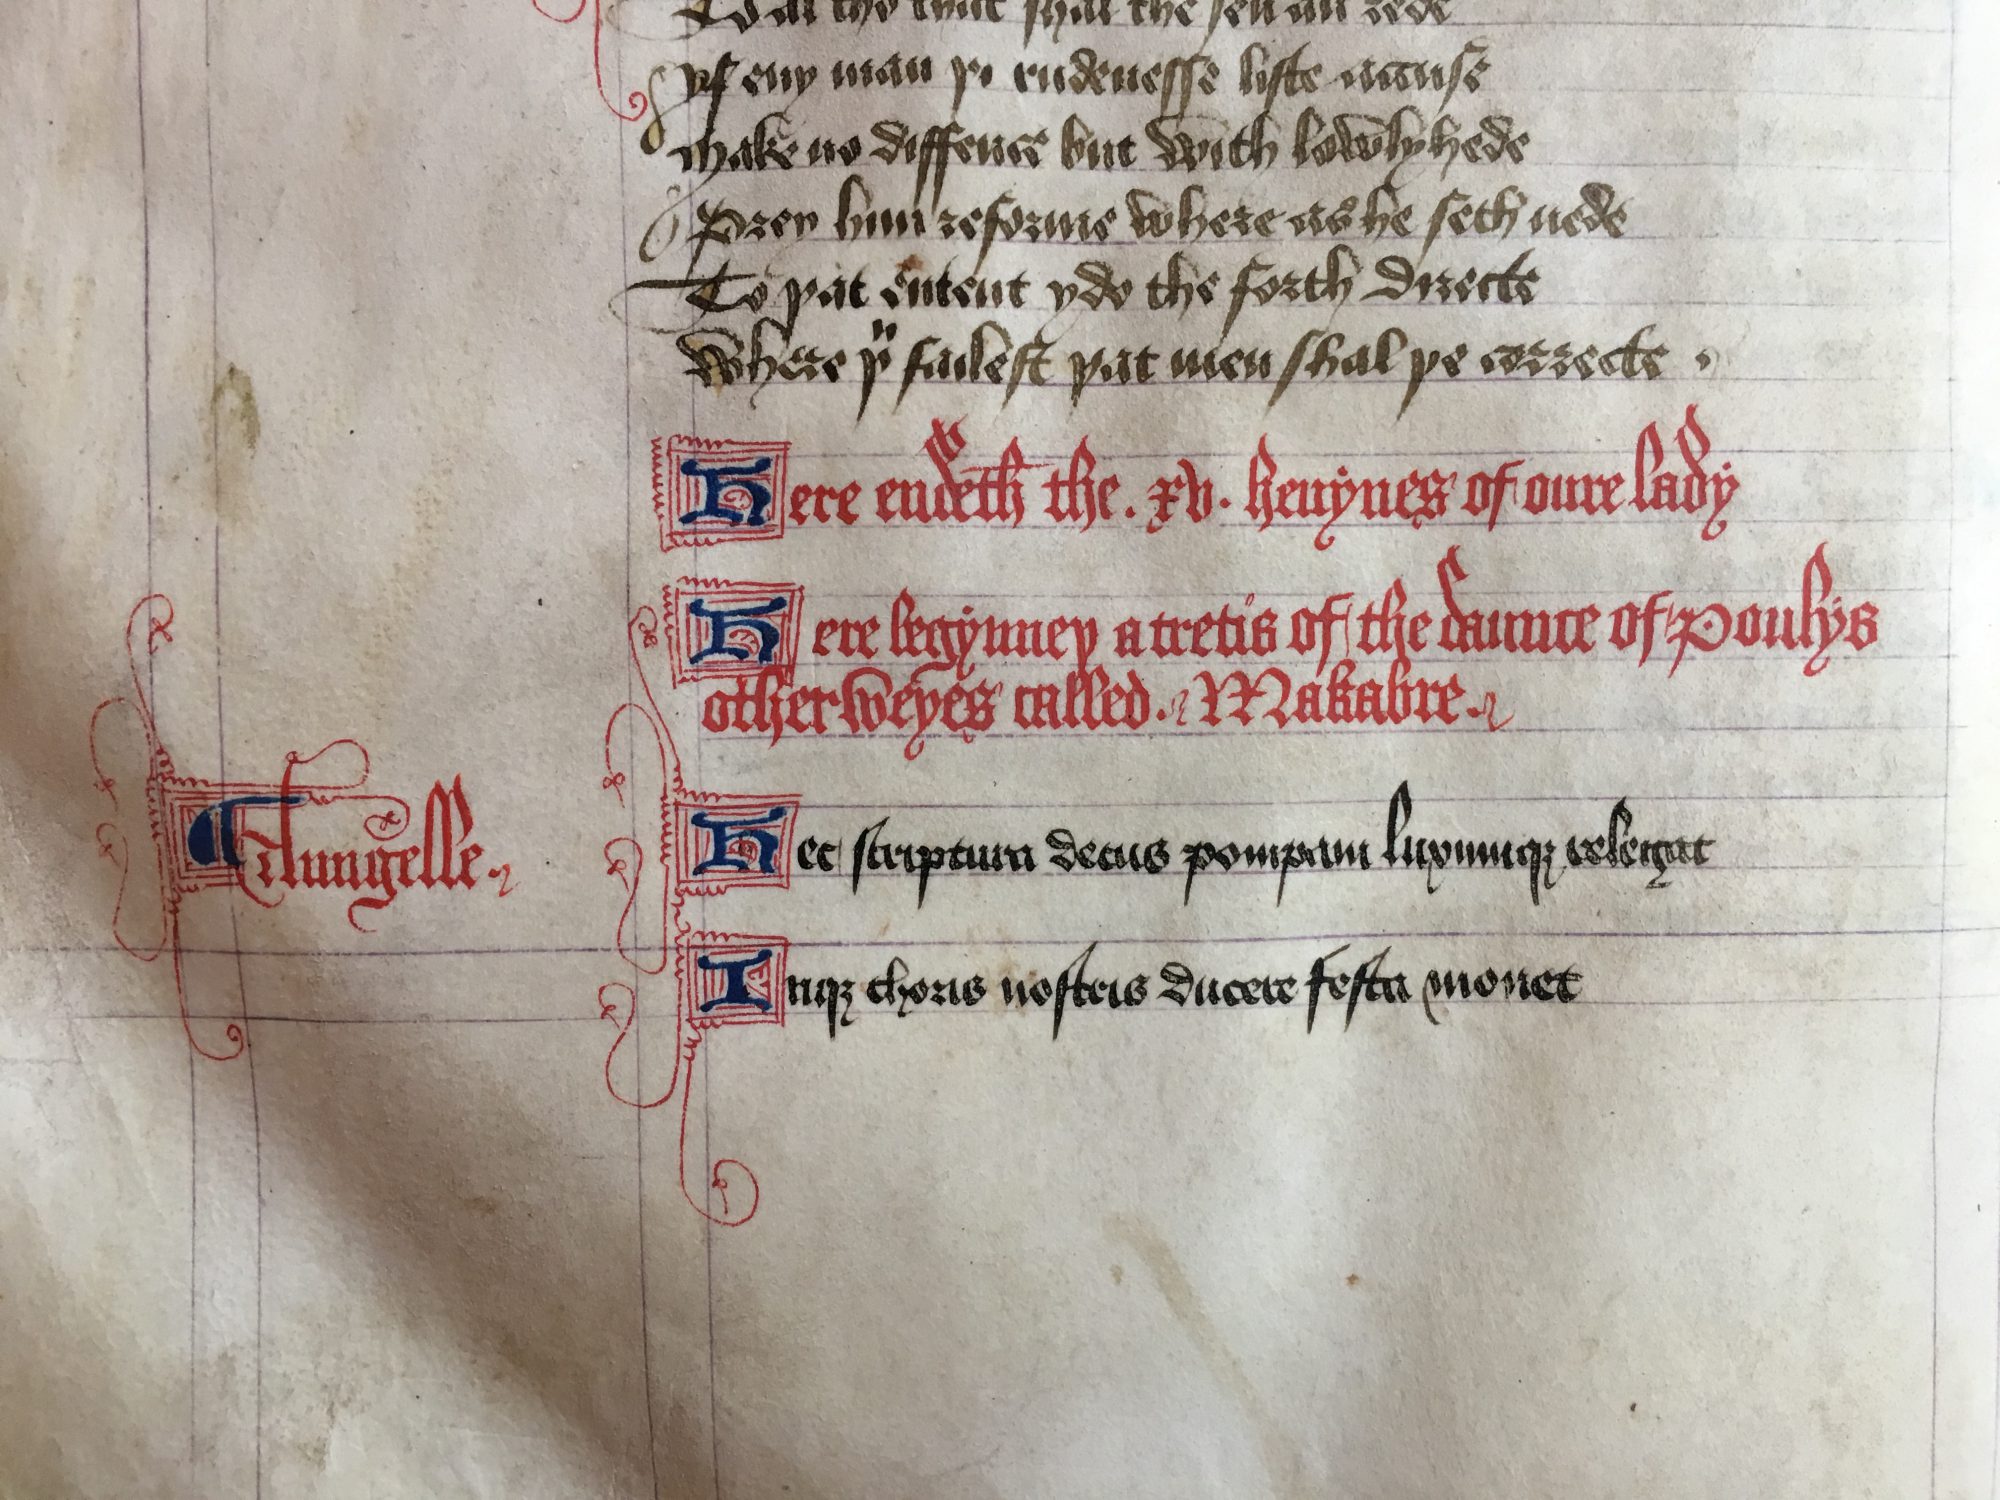 To al tho that shal the sen an rede
yf eny man þi rudenesse liste accuse
Make no diffence but with lowlyhede
Prey him reforme where as he seth nede
To þat entent y do the forth directe
Where þu failest þat men shal þe correcte
Here endeth the .xv. heuynes of oure lady
Here begynneþ a tretis of the daunce of Poulys
otherweyes called. Makabre.
Hec scriptura decus pompam luxumqꝫ relegat
Inqꝫ choris nostris ducere festa monet
Aungelle.